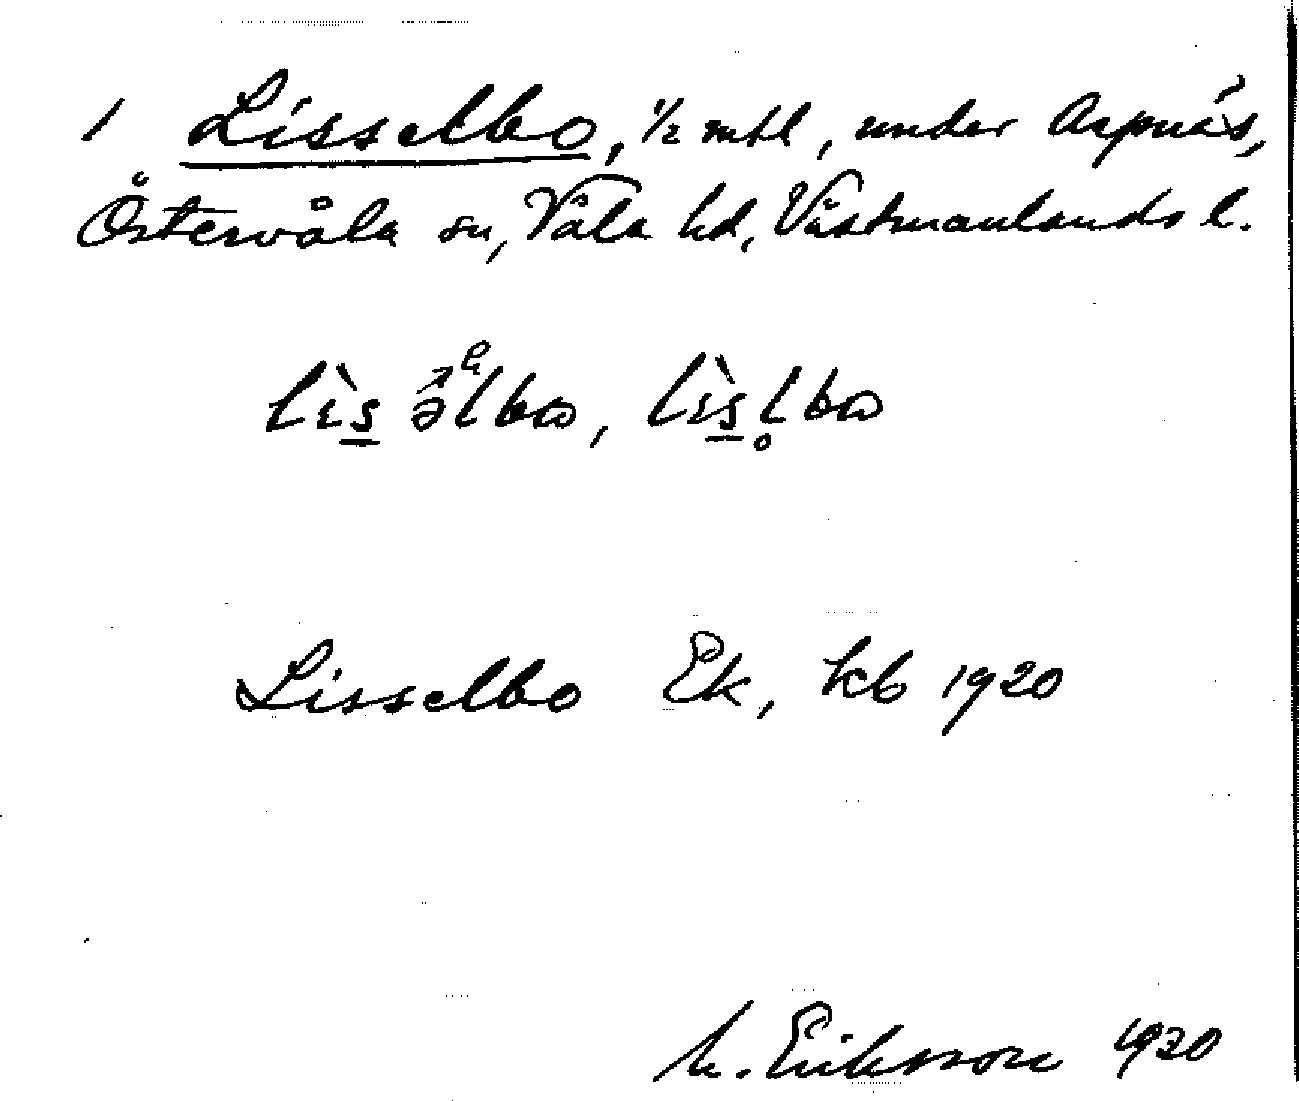 1 Lisselbo, 1/2 mtl, under Aspnäs,
Östervåla sn, Våla hd, Västmanlands l.
Lisselbo Ek, kb 1920
M. Eriksson 1920